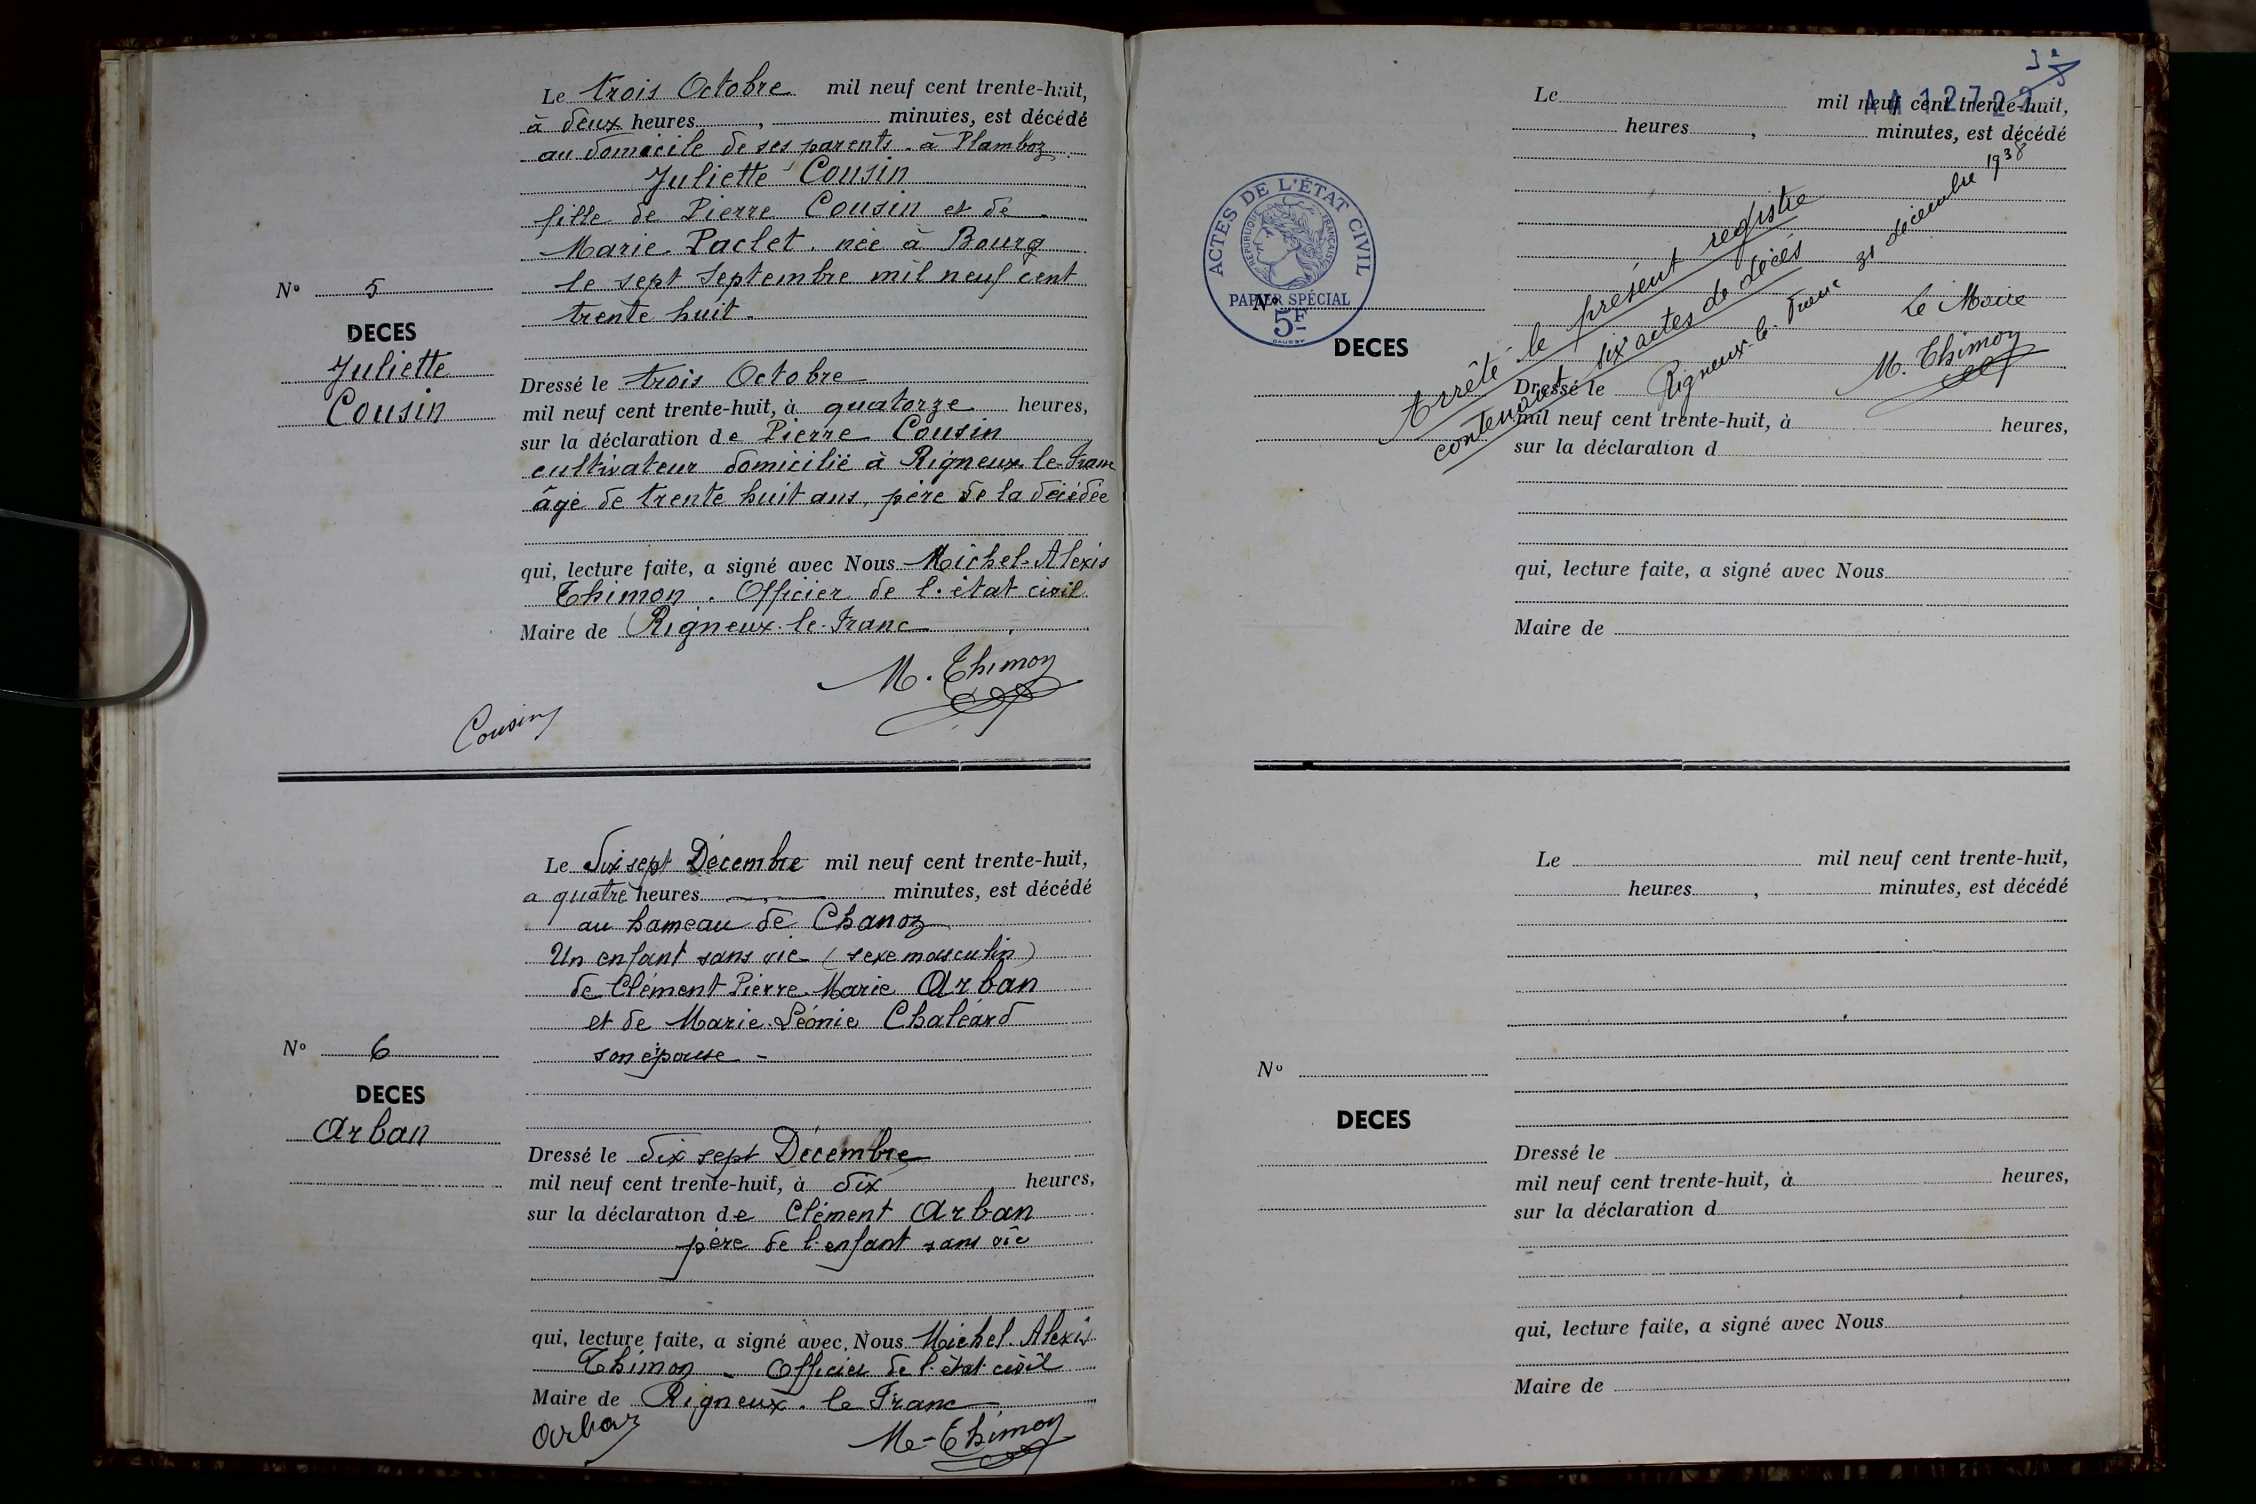 Le trois Octobre mil neuf cent trente-huit,
à deux heures , minutes, est décédé
au domicile de ses parents à Plamboz
Juliette Cousin
fille de Pierre Cousin et de
Marie Paclet. née à Bourg
le sept Septembre mil neuf cent
trente huit.
N° 5
DECES
Juliette
Cousin
Dressé le trois Octobre
mil neuf cent trente-huit, à quatorze heures,
sur la déclaration de Pierre Cousin
cultivateur domicilié à Rigneux-le-Franc
âgé de trente huit ans, père de la décédée
qui, lecture faite, a signé avec Nous Michel-Alexis
Thimon. Officier de l'état civil
Maire de Rigneux-le-Franc
M. Thimon
Cousin
Le Dix sept Décembre mil neuf cent trente-huit,
a quatre heures , minutes, est décédé
au hameau de Chanoz
Un enfant sans vie (sexe masculin)
de Clément Pierre-Marie Arban
et de Marie-Léonie Chaléard
son épouse -
N° 6
DECES
Arban
Dressé le dix sept Décembre
mil neuf cent trente-huit, à dix heures,
sur la déclaration de Clément Arban
père de l'enfant sans vie
qui, lecture faite, a signé avec Nous Michel-Alexis
Thimon - Officier de l'état civil
Maire de Rigneux-le Franc
Arban
M-Thimon
Le mil neuf cent trente-huit,
heures , minutes, est décédé
ACTES DE L'ÉTAT CIVIL
RÉPUBLIQUE FRANÇAISE
PAPIER SPÉCIAL
5F
N°
DECES
Arrêté le présent registre
contenant six actes de décès
Rigneux-le-Franc 31 décembre 1938
Le Maire
M. Thimon
Dressé le
mil neuf cent trente-huit, à heures,
sur la déclaration d
qui, lecture faite, a signé avec Nous
Maire de
Le mil neuf cent trente-huit,
heures , minutes, est décédé
N°
DECES
Dressé le
mil neuf cent trente-huit, à heures,
sur la déclaration d
qui, lecture faite, a signé avec Nous
Maire de